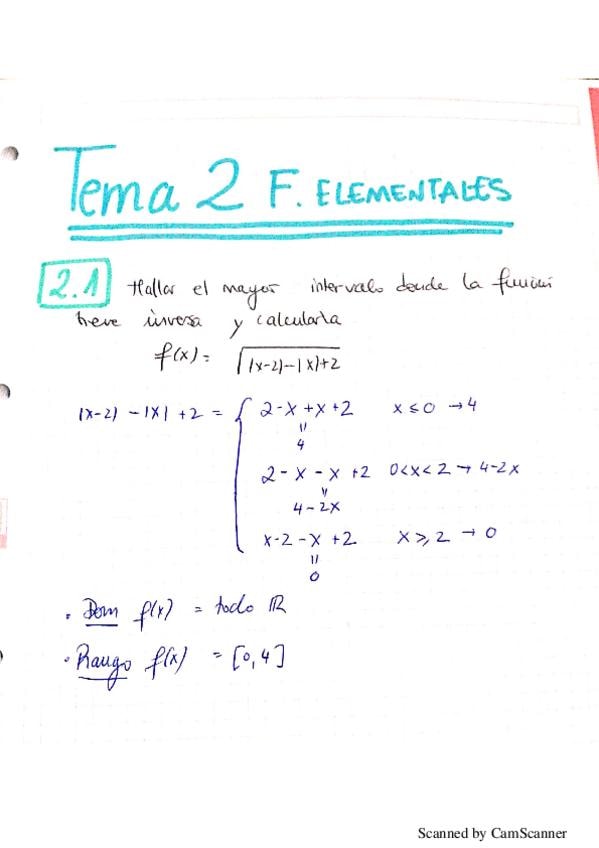 Tema 2 F. ELEMENTALES
2.1 Hallar el mayor intervalo donde la función
tiene inversa y calcularla
f(x) = √|x-2|-|x|+2
|x-2| - |x| + 2 = { 2-x+x+2 x ≤ 0 → 4
"
4
2-x-x+2 0<x<2 → 4-2x
"
4-2x
x-2-x+2 x ≥ 2 → 0
"
0
· Dom f(x) = todo ℝ
· Rango f(x) = [0,4]
Scanned by CamScanner